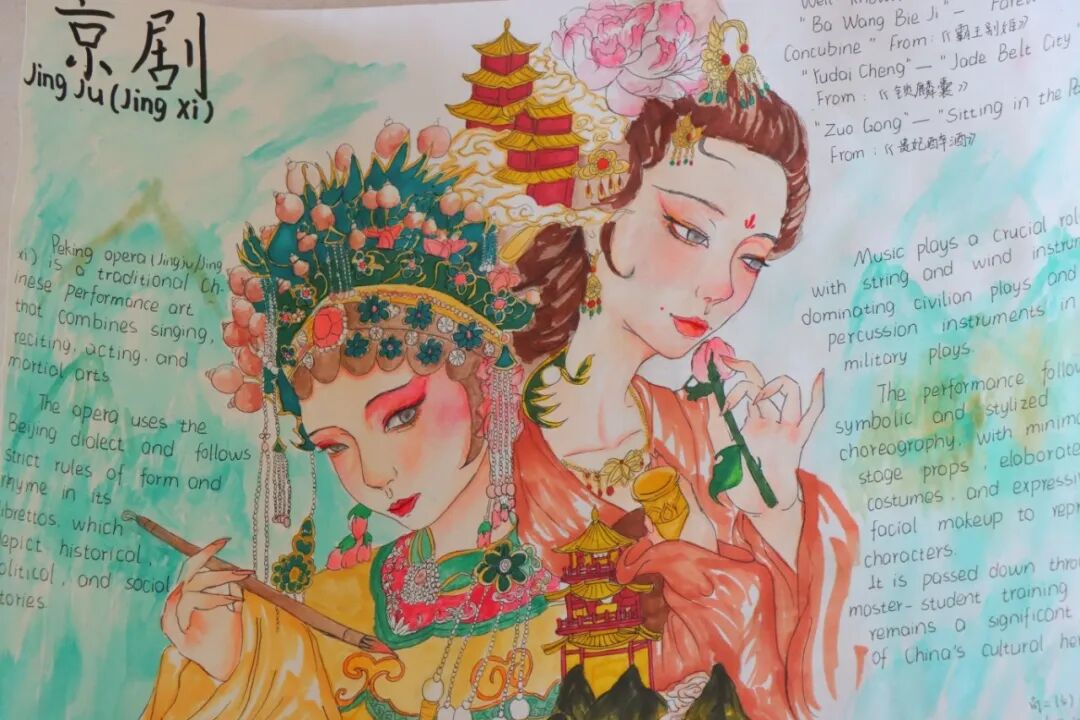 京剧
Jing Ju (Jing xi)
Peking opera (Jingju/Jing
xi) is a traditional Ch-
inese performance art
that combines singing,
reciting, acting, and
martial arts
The opera uses the
Beijing dialect and follows
strict rules of form and
rhyme in its
librettos, which
depict historical,
political, and social
stories
"Ba Wang Bie Ji" —
Concubine" From:《霸王别姬》
"Yudai Cheng" — "Jade Belt City"
From:《锁麟囊》
"Zuo Gong" — "Sitting in the
From:《贵妃醉酒》
Music plays a crucial
with string and wind
dominating civilian plays and
percussion instruments in
military plays.
The performance
symbolic and stylized
choreography, with
stage props, elaborate
costumes, and
facial makeup to
characters.
It is passed down
master-student training
remains a significant
of China's cultural